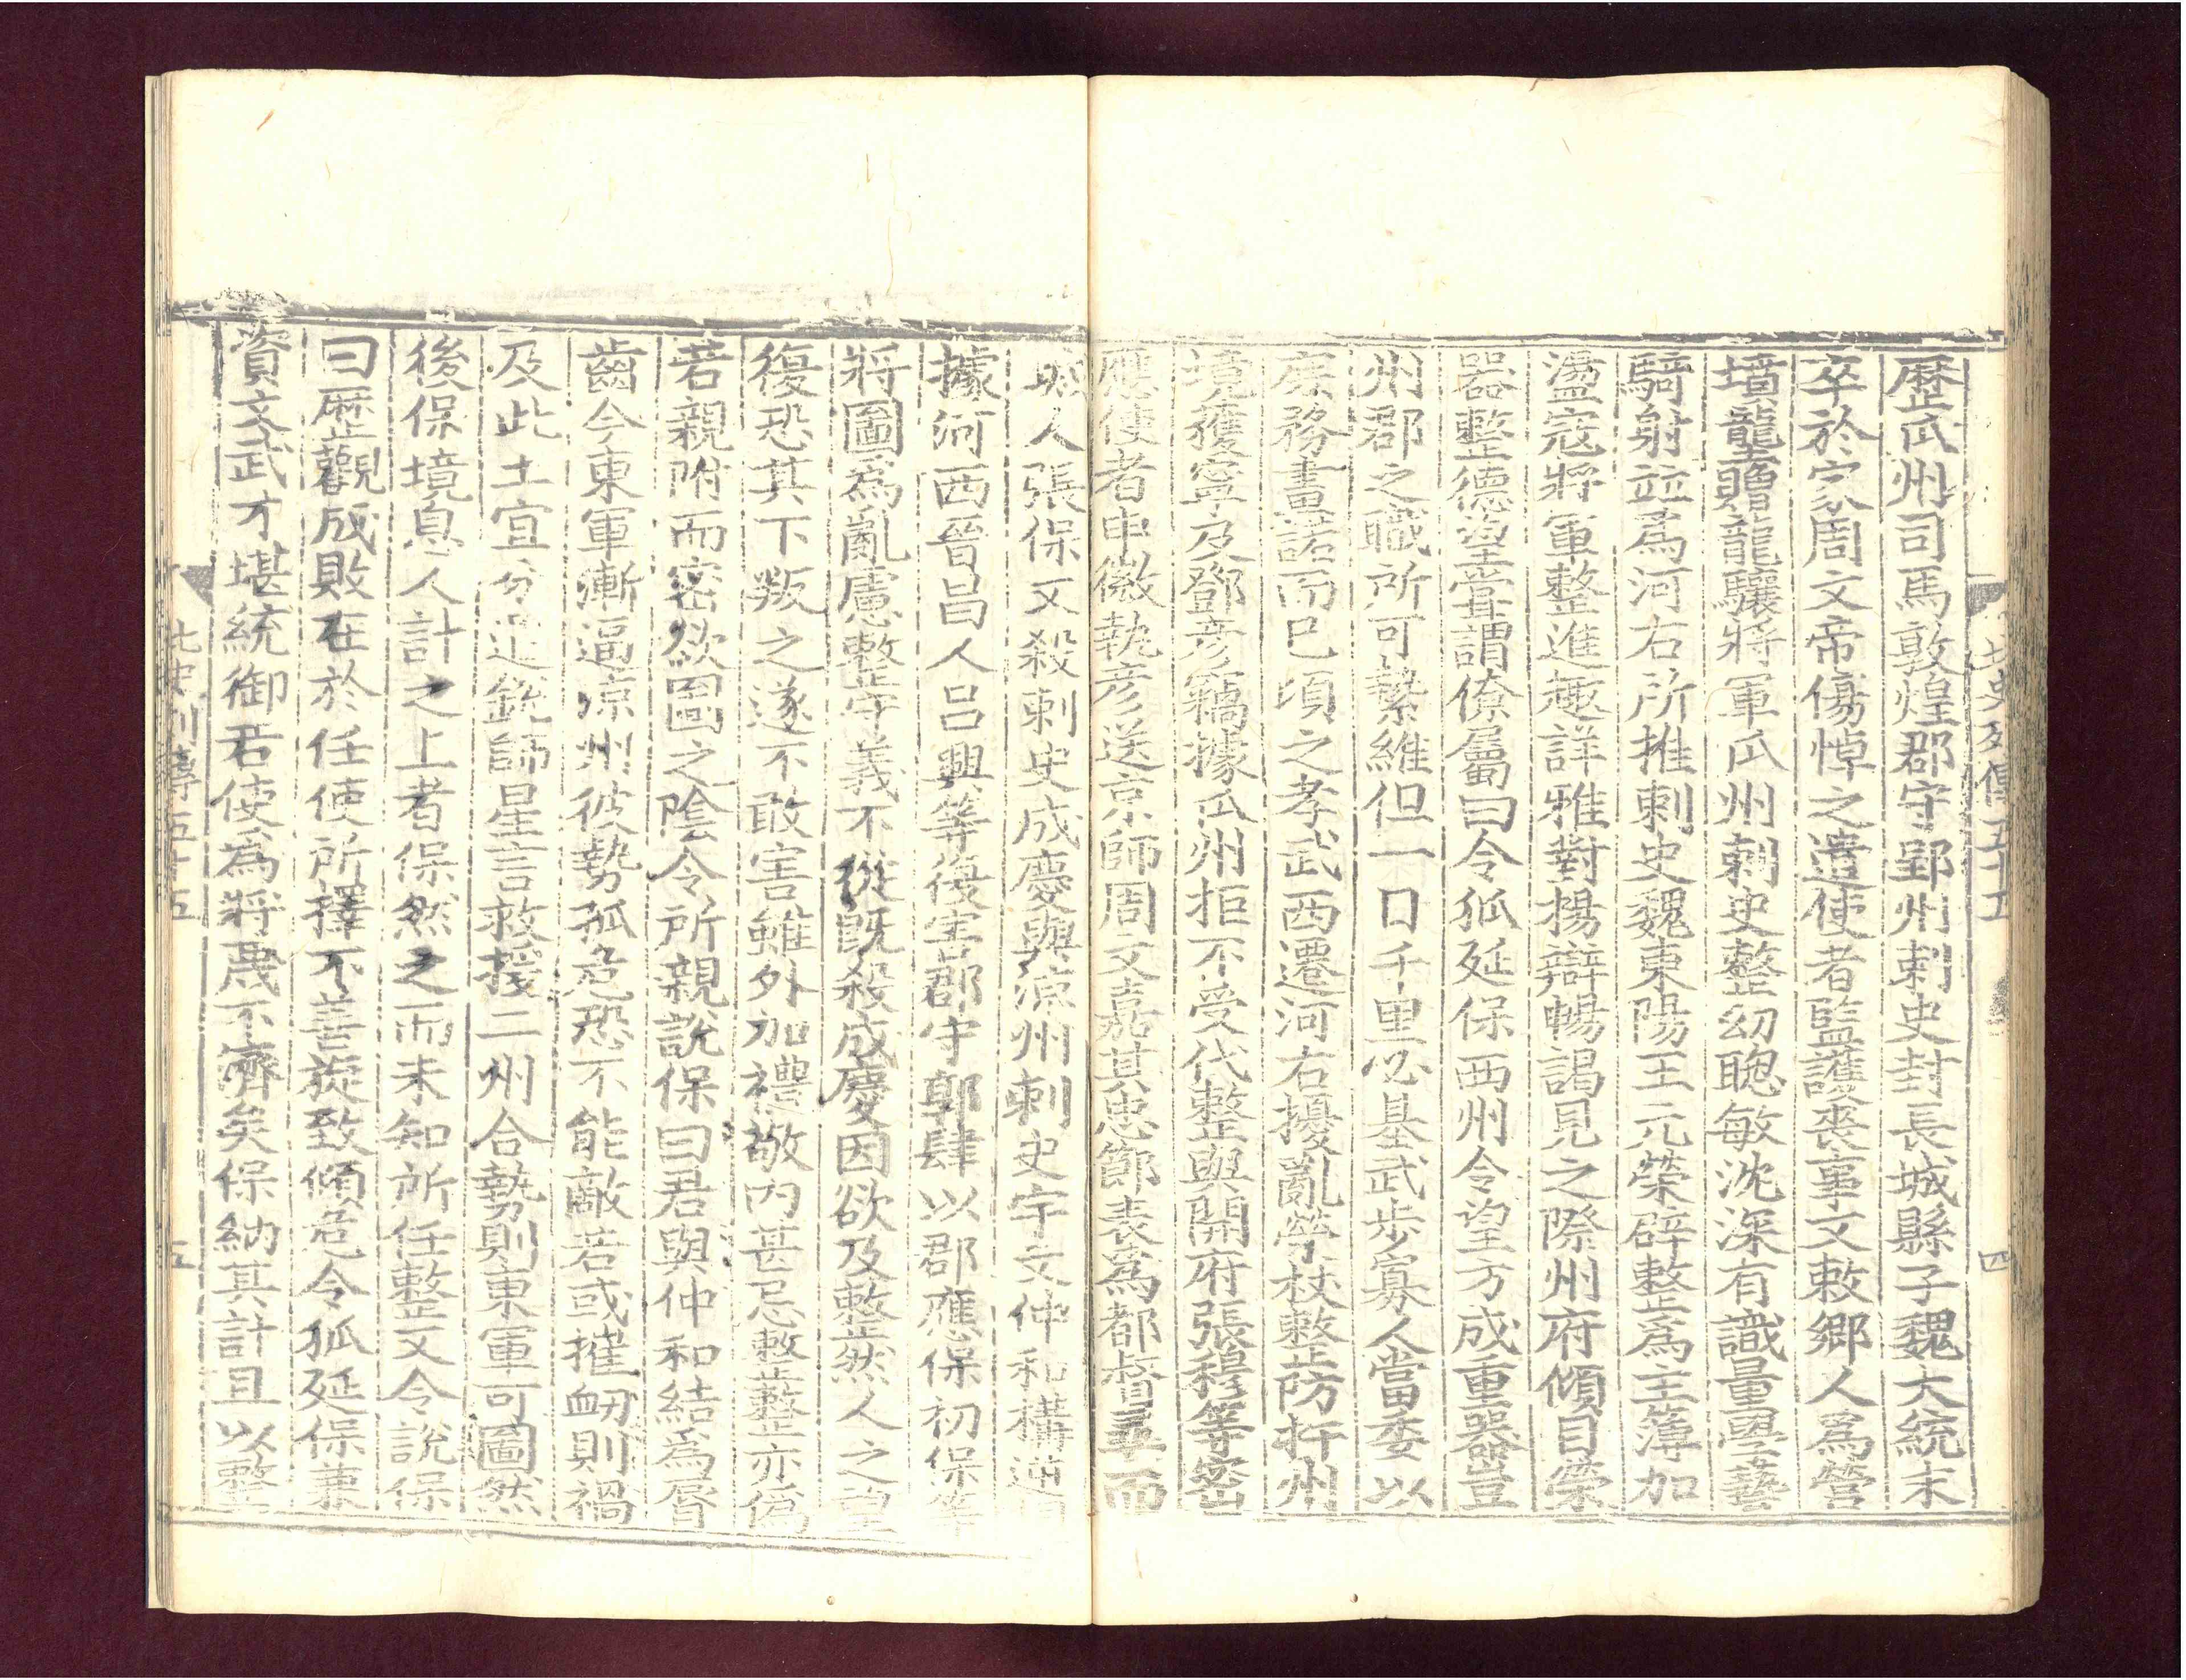 北史列傳五十五
四
歷瓜州司馬敦煌郡守郢州刺史封長城縣子魏大統末
卒於家周文帝傷悼之遣使者監護喪事又敕鄉人爲營
墳壟贈龍驤將軍瓜州刺史整幼聰敏沈深有識量學藝
騎射並爲河右所推刺史魏東陽王元榮辟整爲主簿加
盪寇將軍整進趣詳雅對揚辯暢謁見之際州府傾目榮
器整德望嘗謂僚屬曰令狐延保西州令望方成重器豈
州郡之職所可縶維但一日千里必基武步寡人當委以
庶務畫諾而已頃之孝武西遷河右擾亂榮杖整防扞州
境獲寧及鄧彥竊據瓜州拒不受代整與開府張穆等密
應使者申徽執彥送京師周文嘉其忠節表爲都督尋而
城人張保又殺刺史成慶與涼州刺史宇文仲和構逆
據河西晉昌人呂興等復害郡守郭肆以郡應保初保等
將圖爲亂慮整守義不從既殺成慶因欲及整然人之望
復恐其下叛之遂不敢害雖外加禮敬內甚忌整整亦僞
若親附而密欲圖之陰令所親說保曰君與仲和結爲脣
齒今東軍漸逼涼州彼勢孤危恐不能敵若或摧衄則禍
及此土宜分遣銳師星言救援二州合勢則東軍可圖然
後保境息人計之上者保然之而未知所任整又令說保
曰歷觀成敗在於任使所擇不善旋致傾危令狐延保兼
資文武才堪統御若使爲將蔑不濟矣保納其計且以整
北史列傳五十五
五